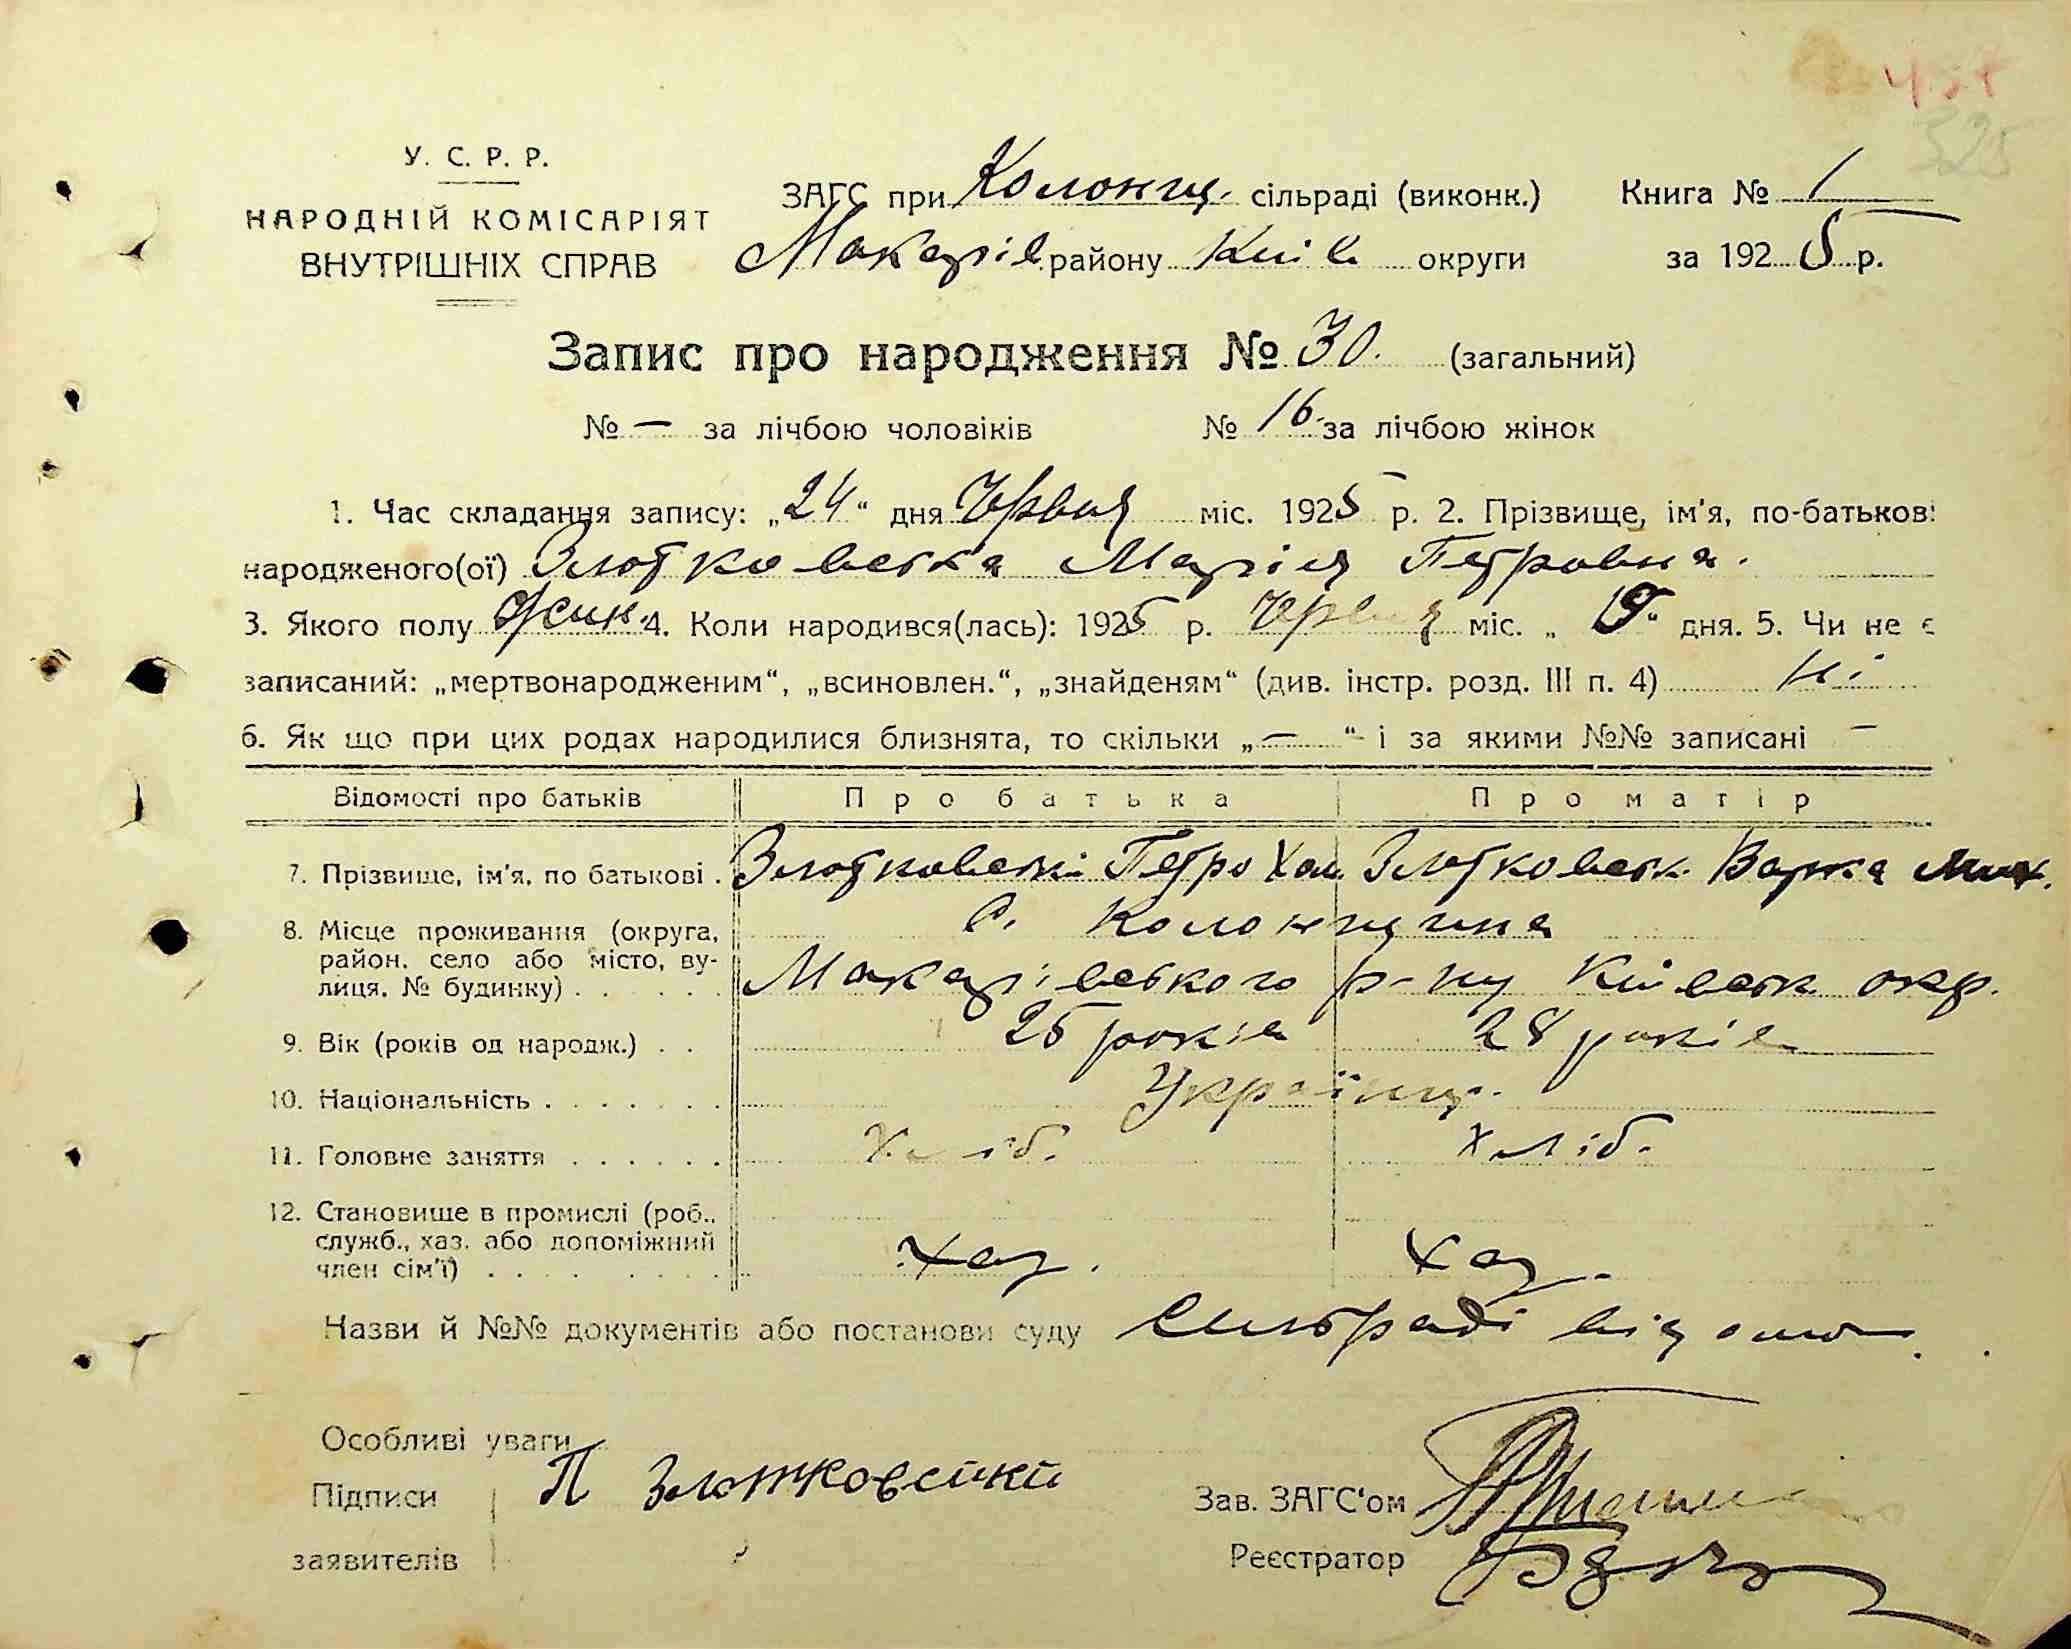 325
У. С. Р. Р.
НАРОДНІЙ КОМІСАРІЯТ
ВНУТРІШНІХ СПРАВ
ЗАГС при Колонщ. сільраді (виконк.) Книга № 1
Макарів району Київ округи за 1925 р.
Запис про народження № 30. (загальний)
№ — за лічбою чоловіків № 16. за лічбою жінок
1. Час складання запису: „24“ дня Червня міс. 1925 р. 2. Прізвище, ім'я, по-батькові
народженого(ої) Злотковська Марія Петровна.
3. Якого полу жін. 4. Коли народився(лась): 1925 р. Червня міс. „ “ дня. 5. Чи не є
записаний: „мертвонародженим“, „всиновлен.“, „знайденям“ (див. інстр. розд. III п. 4) ні
6. Як що при цих родах народилися близнята, то скільки „—“ і за якими №№ записані —
Відомості про батьків Про батька Про матір
7. Прізвище, ім'я, по батькові . Злотковські Петро Хом. Злотковськ. Варка Мих.
8. Місце проживання (округа, район, село або місто, вулиця, № будинку) . . . . . с. Колонщина
Макарівського р-ну Київськ окр.
9. Вік (років од народж.) . . 25 років 28 років
10. Національність . . . . . . . Українц.
11. Головне заняття . . . . . . Хліб. хліб.
12. Становище в промислі (роб., служб., хаз. або допоміжний член сім'ї) . . . . . . . . Хаз. Хаз.
Назви й №№ документів або постанови суду Сильраді відомо.
Особливі уваги
Підписи П Злотковский Зав. ЗАГС'ом
заявителів Реєстратор